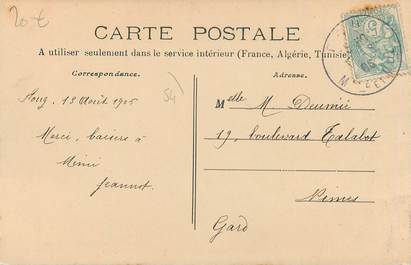 20-€
CARTE POSTALE
A utiliser seulement dans le service intérieur (France, Algérie, Tunisie
Correspondance.
Adresse.
54
13 Août 1905
Merci, baisers à
Mimi
Jeannot.
Melle M. Daumié
19, boulevard Talabot
Nimes
Gard